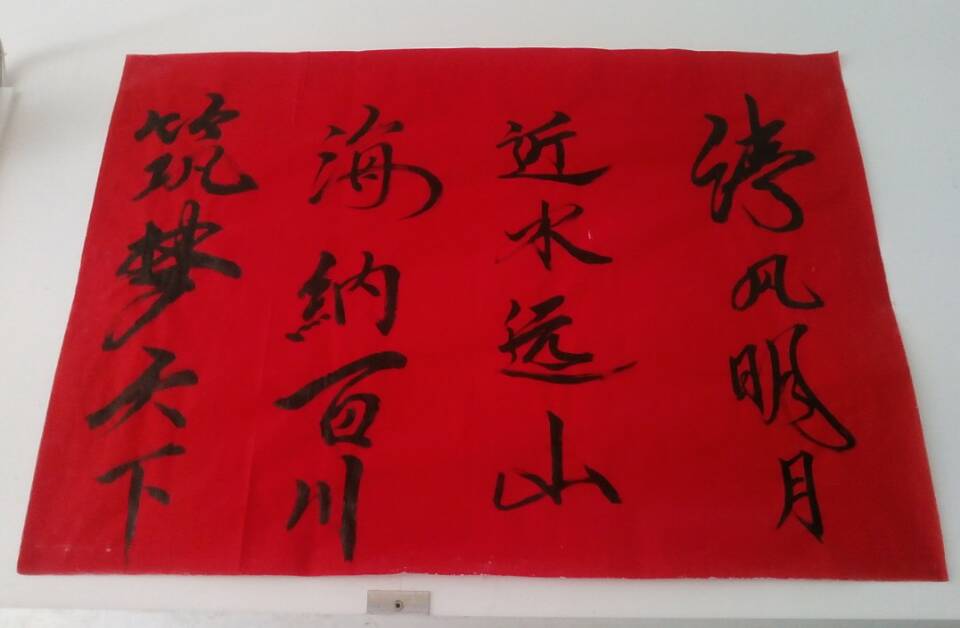 清风明月
近水远山
海納百川
筑梦天下